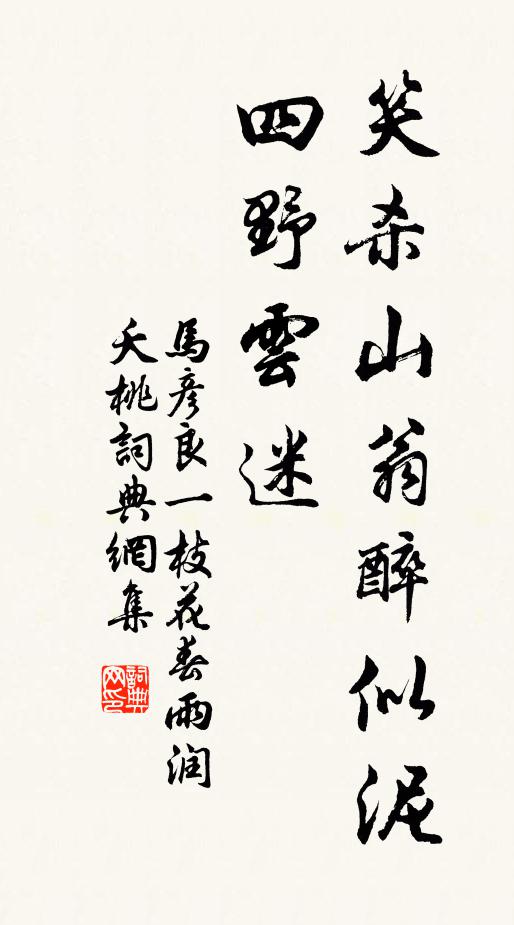 笑杀山翁醉似泥
四野雲迷
馬彦良一枝花春雨润
夭桃詞典網集
詞典网印